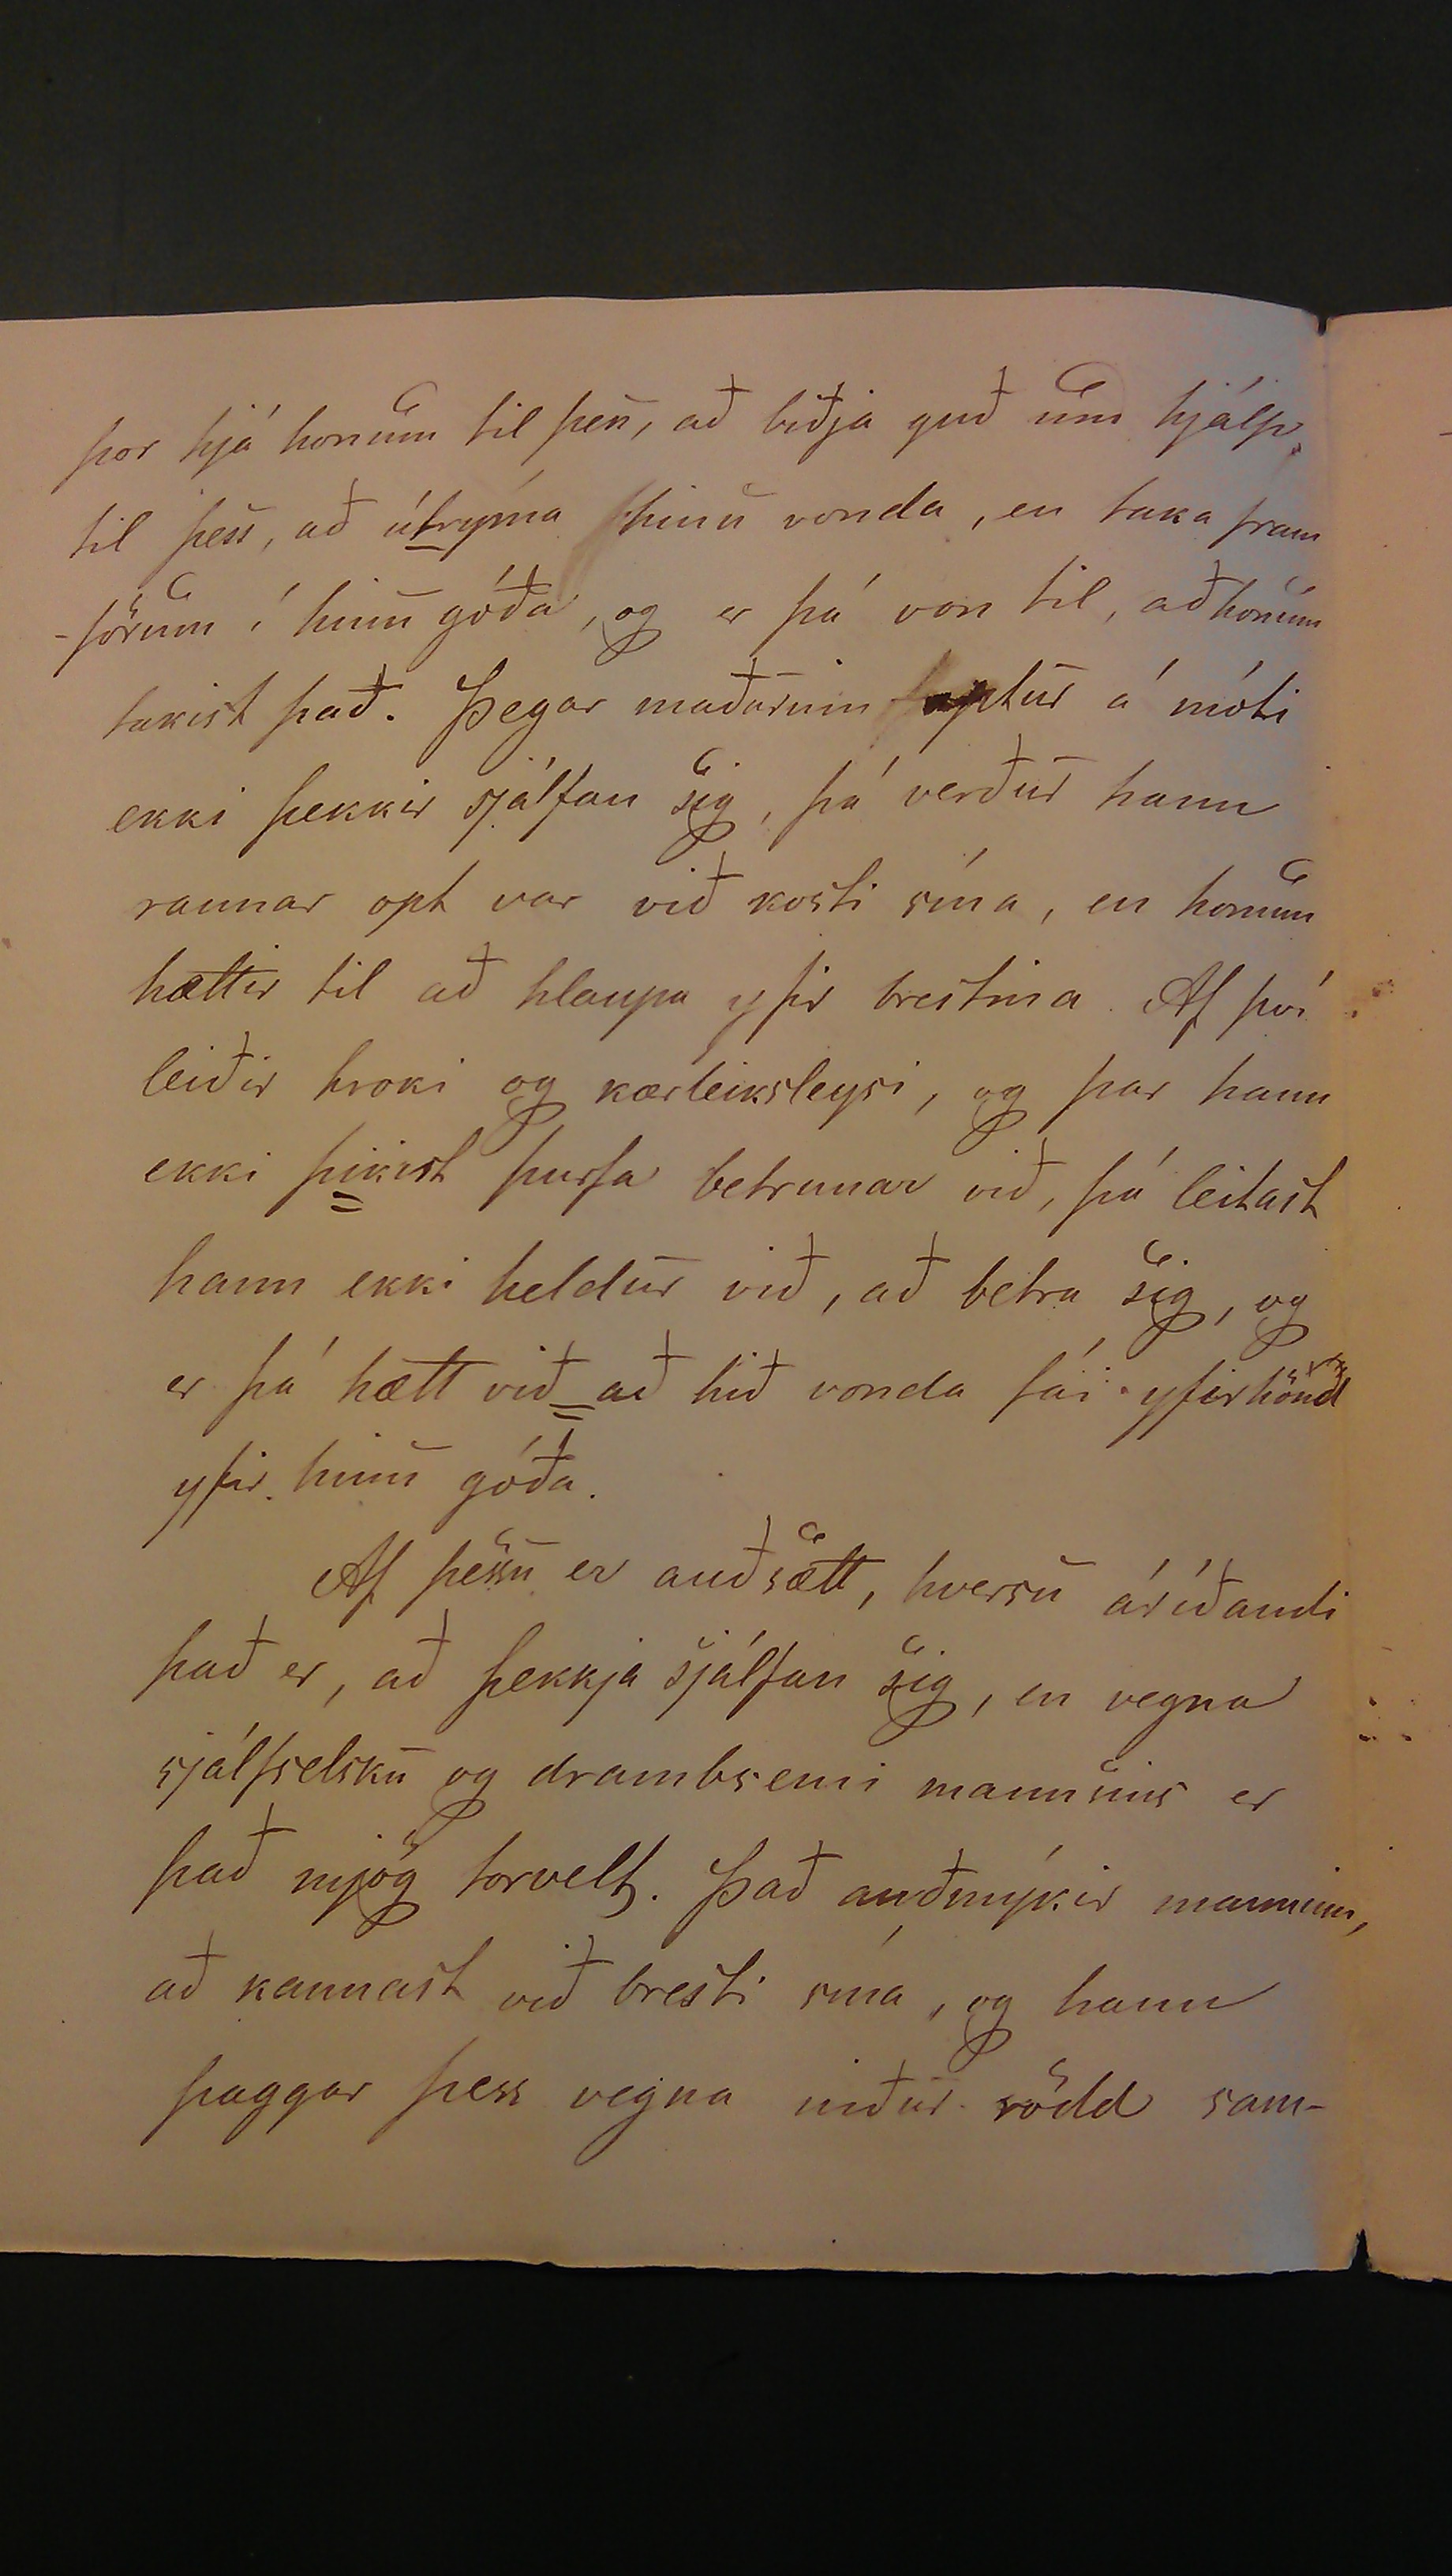 þor hjá honum til þess, að biðja guð um hjálp
til þess, að útryma hinu vonda, en taka fram
-förum í hinu góða, og er þá von til, að honum
takist það. Þegar maðurinn aptur á móti
ekki þekkir sjálfan sig, þá verður hann
raunar opt var við kosti sína, en honum
hættir til að hlaupa yfir brestina. Af því
leiðir hroki og kærleiksleysi, og þar hann
ekki þikist þurfa betrunar við, þá leitast
hann ekki heldur við, að betra sig, og
er þá hætt við að hið vonda fái yfirhönd
yfir hinu góða.
Af þessu er auðsætt, hversu áríðandi
það er, að þekkja sjálfan sig, en vegna
sjálfselsku og drambsemi mannsins er
það mjög torvelt. Það auðmýkir manninn,
að kannast við bresti sína, og hann
þaggar þess vegna niður rödd sam-